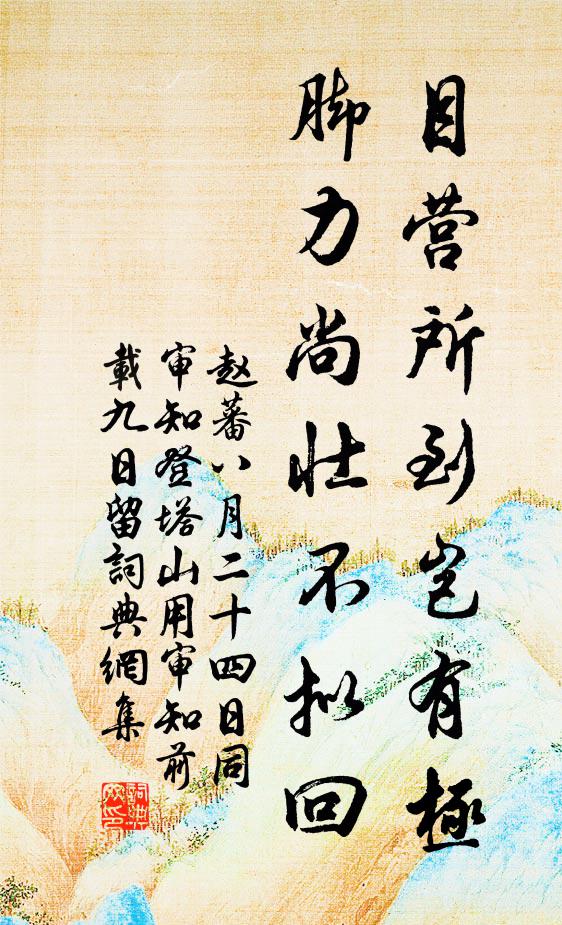 目营所到岂有極
脚力尚壮不拟回
赵蕃八月二十四日同
审知登塔山用审知前
載九日留詞典網集